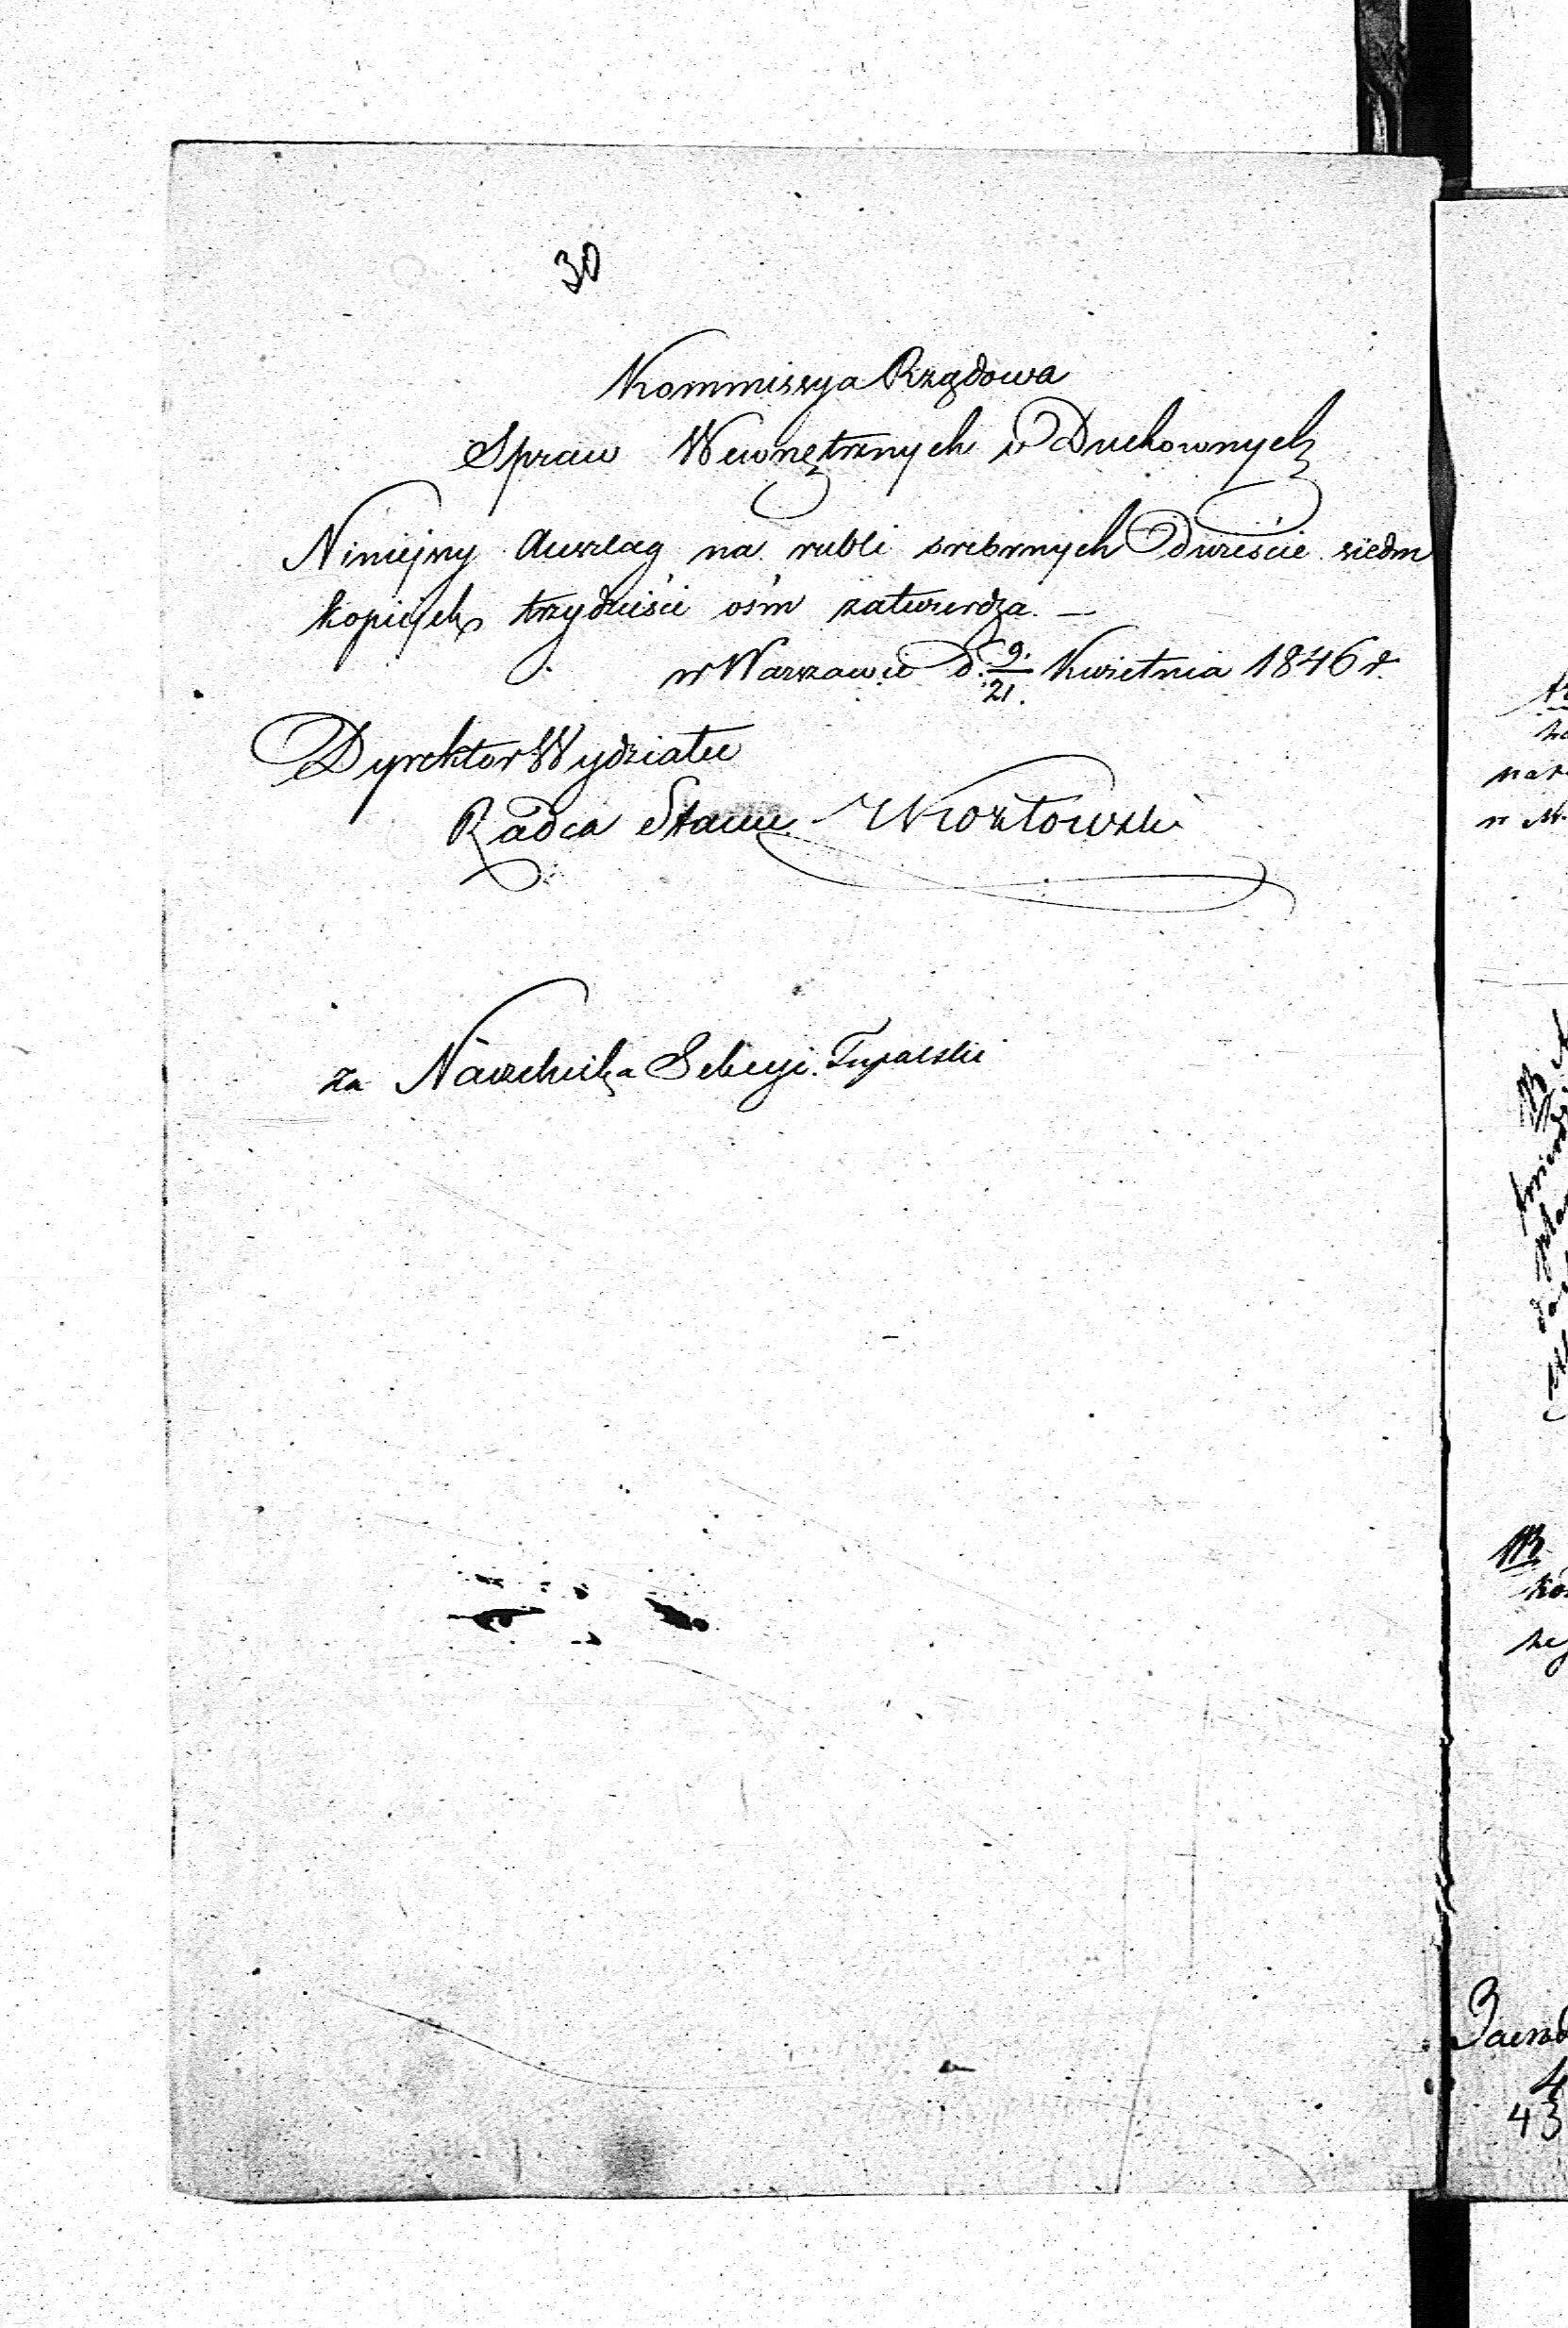 30
Kommissya Rządowa
Spraw Wewnętrznych i Duchownych
Niniejszy Anszlag na rubli srebrnych dwieście siedm
kopiejek trzydzieści ośm zatwierdza. —
w Warszawie d. 9/21. Kwietnia 1846 r.
Dyrektor Wydziału
Radca Stanu Kozłowski
za Naczelnika Sekcyi.